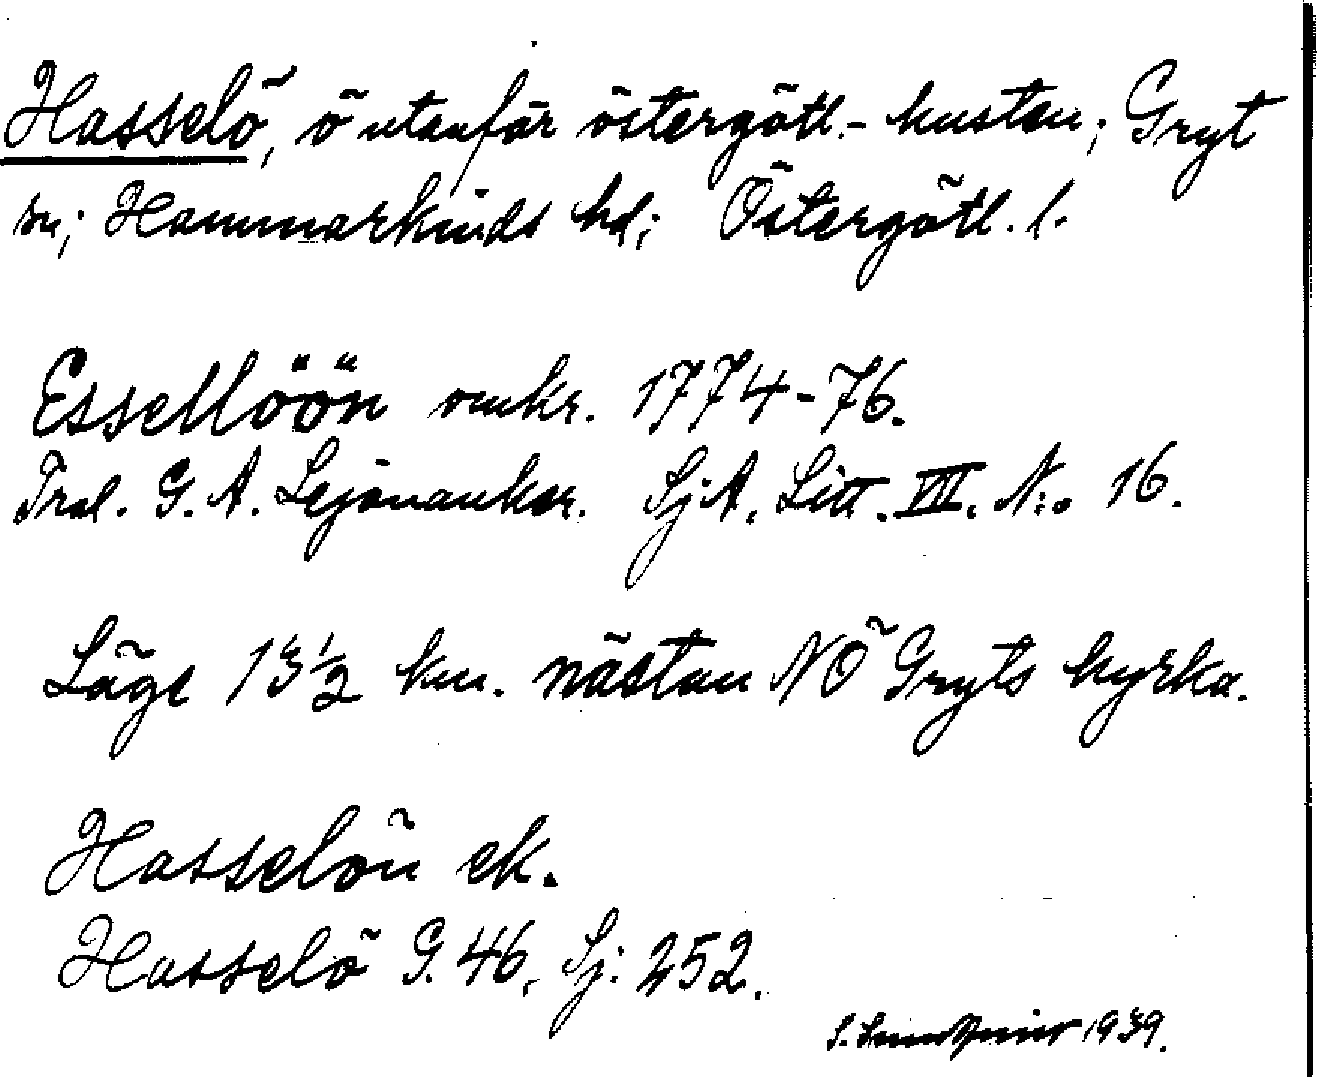 Hasselö, ö utanför östergötl.- kusten; Gryt
sn; Hammarkinds hd; Östergötl. l.
Essellöön omkr. 1774-76.
Trol. G. A. Lejonanker. SjA. Litt. VII. N:o 16.
Läge 13½ km. nästan NÖ Gryts kyrka.
Hasselön ek.
Hasselö G. 46, Sj: 252.
S. 1939.